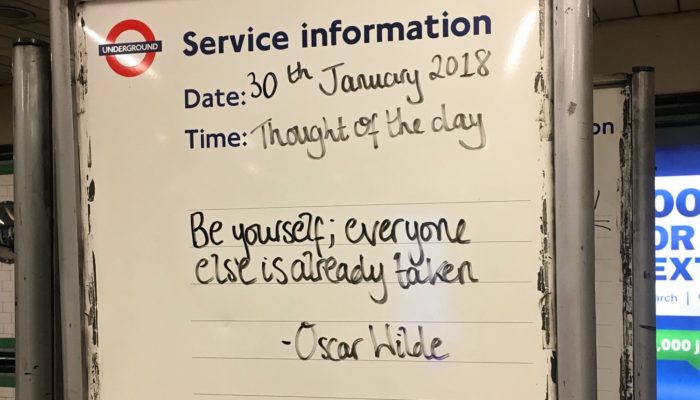 UNDERGROUND
Service information
Date: 30th January 2018
Time: Thought of the day
Be yourself; everyone
else is already taken
- Oscar Wilde
on
OR
,000 j